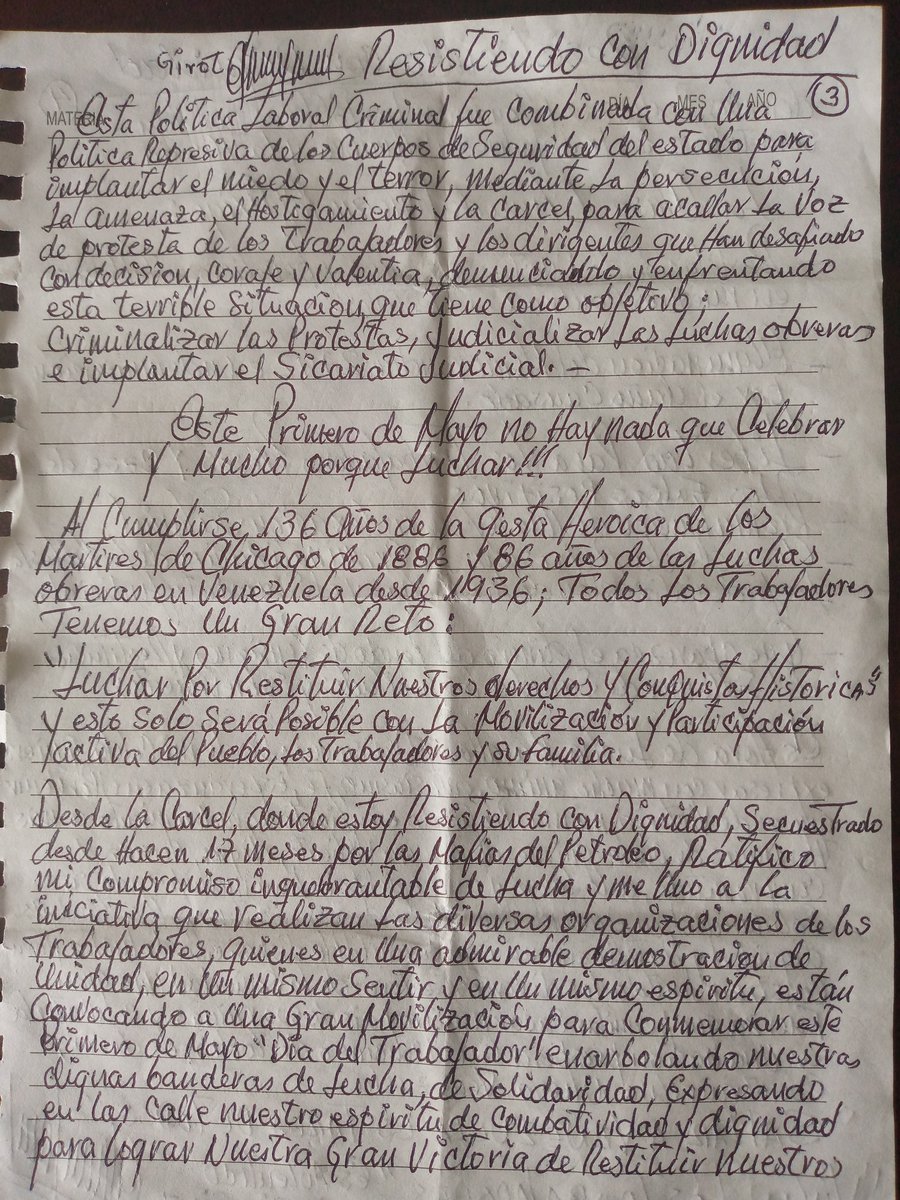 Girot Resistiendo con Dignidad
MATERIA DÍA MES AÑO 3
Esta Política Laboral Criminal fue combinada con Una
Política Represiva de los Cuerpos de Seguridad del estado para
implantar el miedo y el terror, mediante la persecución,
la amenaza, el Hostigamiento y la Carcel, para acallar la voz
de protesta de los Trabajadores y los dirigentes que Han desafiado
con decision, coraje y valentia, denunciando y enfrentando
esta terrible situacion, que tiene como objetivo;
Criminalizar las Protestas, Judicializar las Luchas obreras
e implantar el Sicariato Judicial. —
Este Primero de Mayo no Hay nada que Celebrar
Y Mucho porque Luchar!!!
Al Cumplirse 136 Años de la gesta Heroica de los
Martires de Chicago de 1886 y 86 años de las Luchas
obreras en Venezuela desde 1936; Todos los Trabajadores
Tenemos Un Gran Reto:
"Luchar Por Restituir Nuestros derechos y Conquistas Historicas"
y esto Solo Será Posible con la Movilización y Participación
activa del Pueblo, los Trabajadores y su familia.
Desde la Carcel, donde estoy Resistiendo con Dignidad, Secuestrado
desde Hacen 17 meses por las Mafias del Petroleo, Ratifico
mi Compromiso inquebrantable de Lucha y me Uno a la
iniciativa que realizan las diversas organizaciones de los
Trabajadores, quienes en Una admirable demostracion de
Unidad, en Un mismo Sentir y en Un mismo espiritu, están
Convocando a Una Gran Movilización para Conmemorar este
Primero de Mayo "Día del Trabajador" enarbolando nuestras
dignas banderas de Lucha, de Solidaridad, Expresando
en las calle nuestro espiritu de Combatividad y dignidad
para lograr Nuestra Gran Victoria de Restituir Nuestros